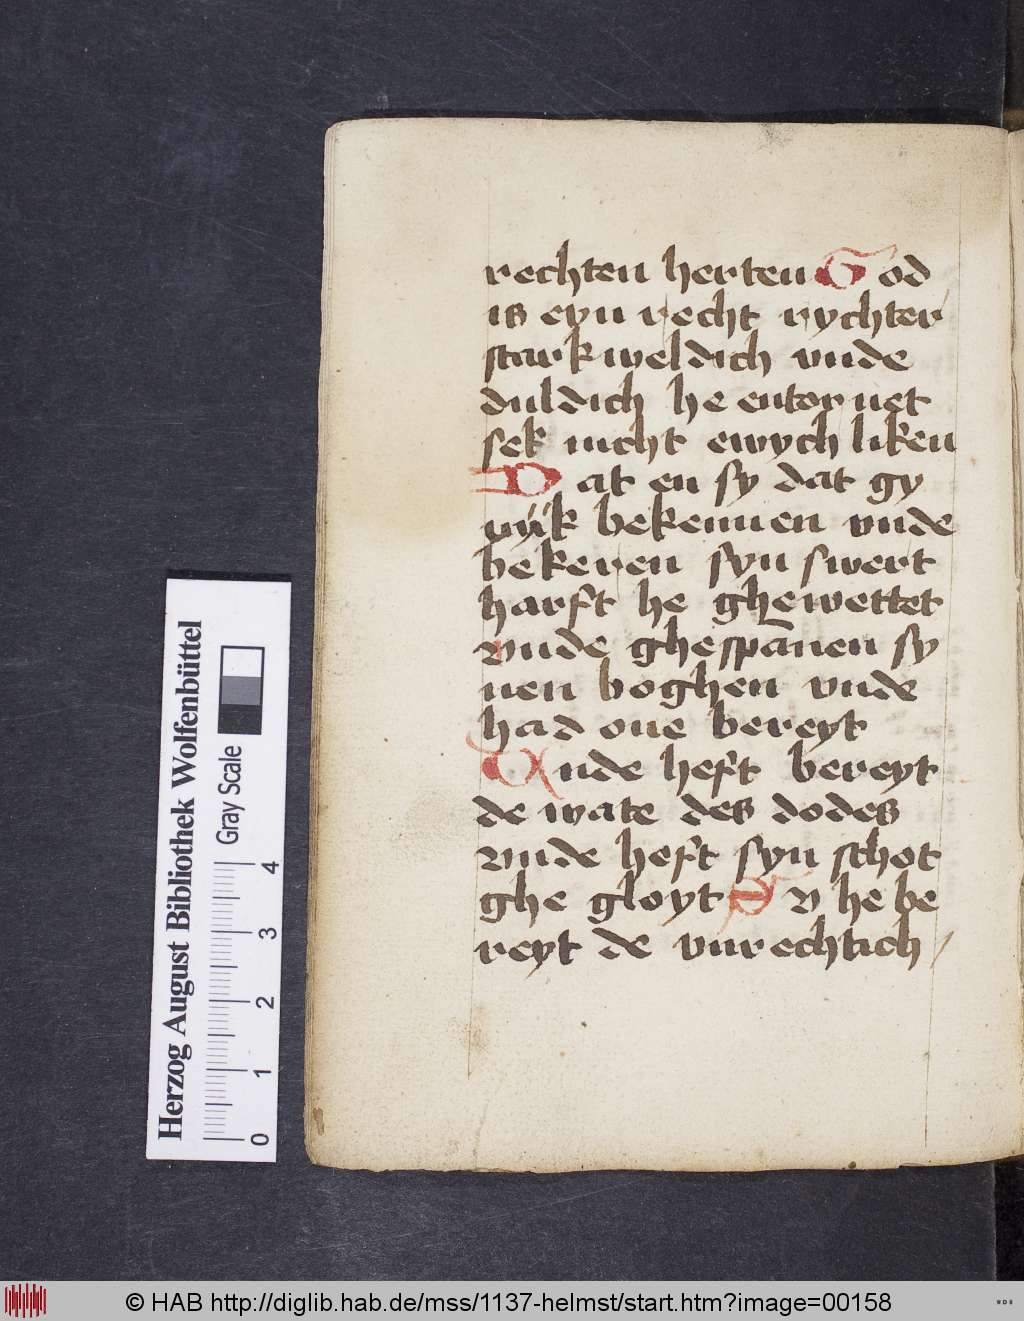 rechten herten God
is eyn recht rychter
stark weldich vnde
duldich he entornet
sek nicht ewychliken
Dat en sy dat gy
uyk bekennen vnde
bekeren syn swert
harft he ghewettet
vnde ghespānen sy
nen boghen vnde
had one bereyt
Vnde heft bereyt
de wate des dodes
vnde heft syn schot
ghe gloyt Sv he be
reyt de vnrechtich
Herzog August Bibliothek Wolfenbüttel
Gray Scale
0 1 2 3 4
© HAB http://diglib.hab.de/mss/1137-helmst/start.htm?image=00158